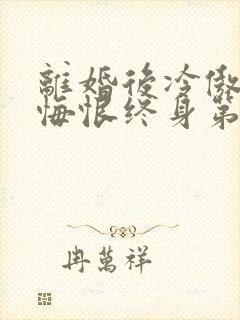 離婚後冷傲
悔恨終身第
冉萬祥